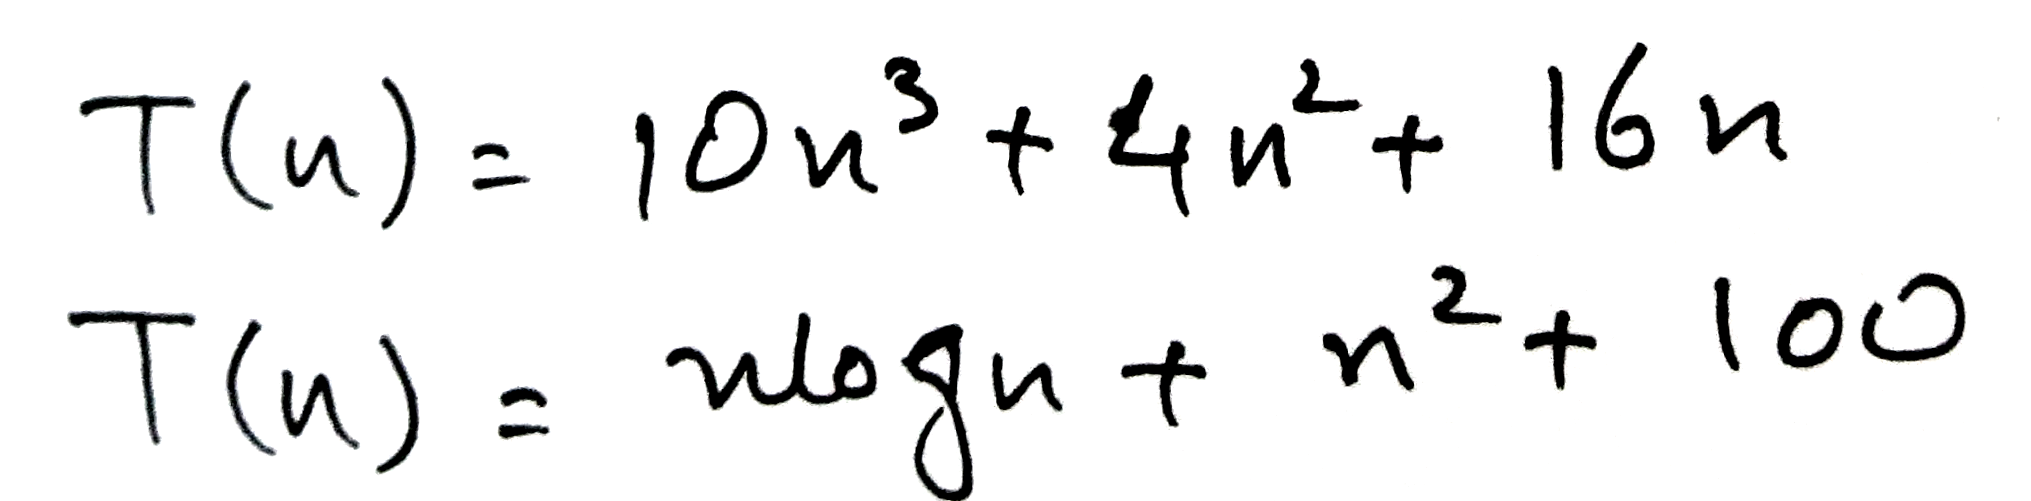 T(n) = 10n³ + 4n² + 16n
T(n) = nlogn + n² + 100